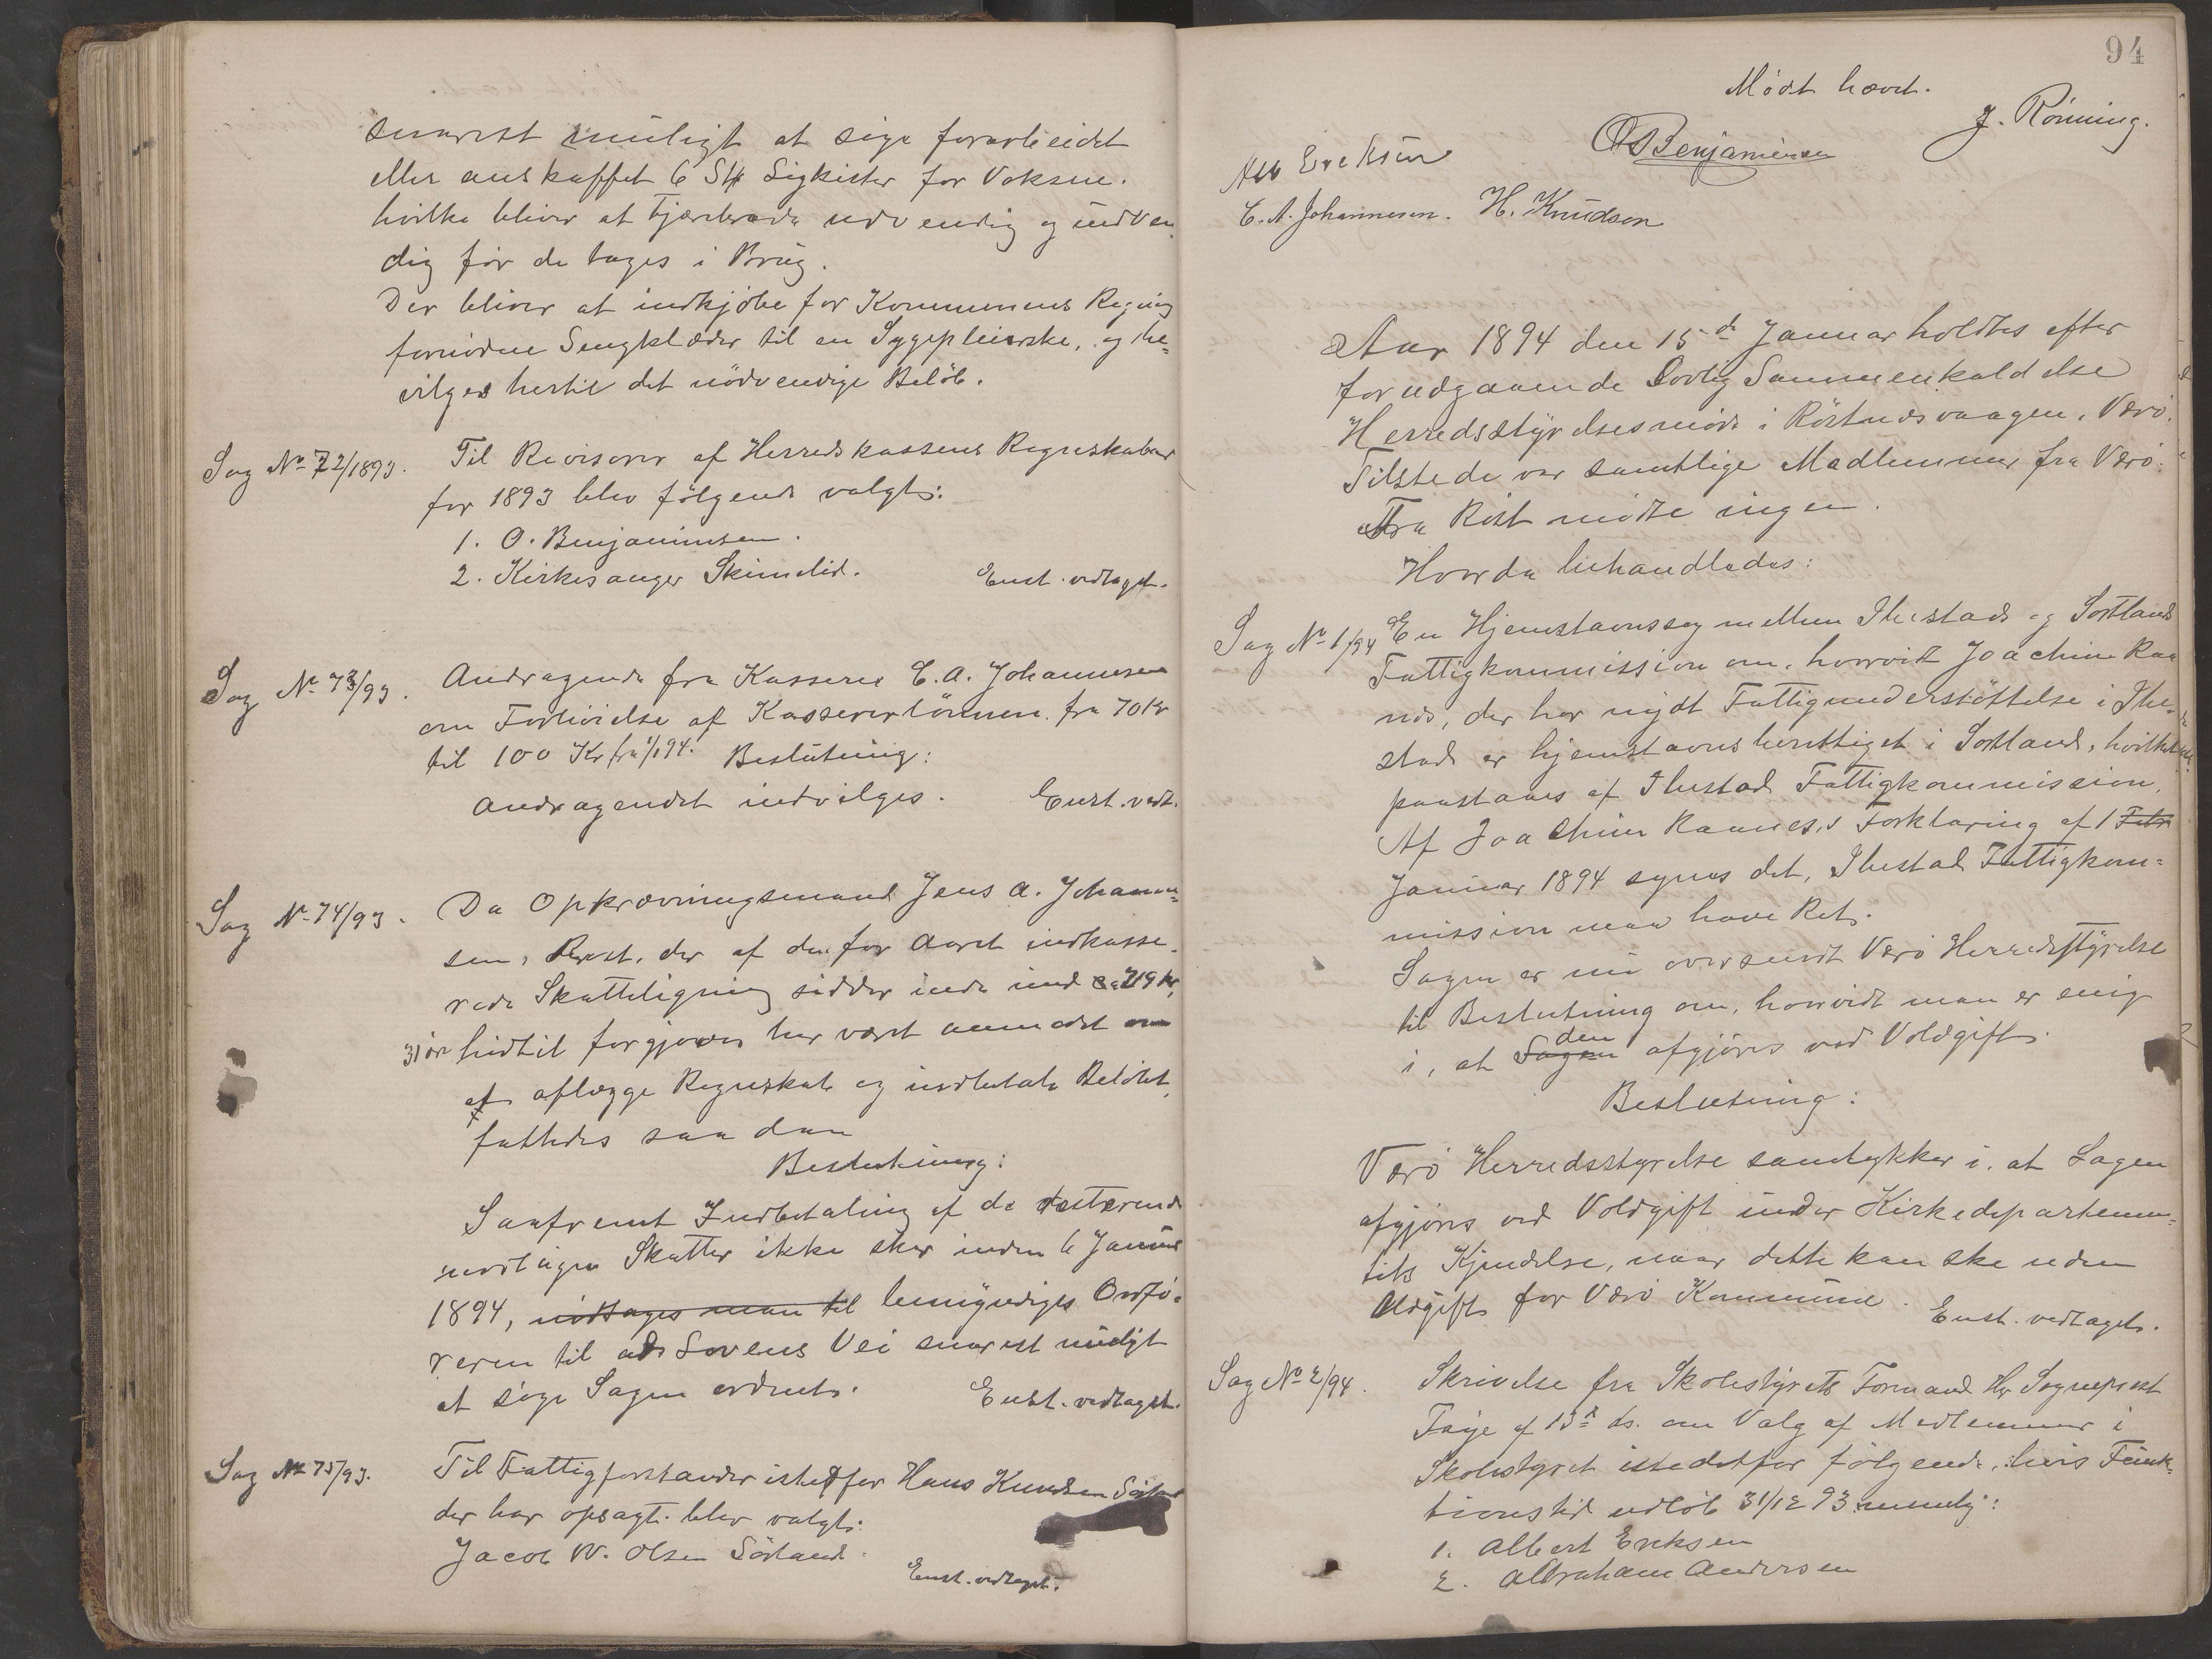 snarest muligt at söge forarbeidet
eller anskaffet 6 Stk Ligkister for Voksne.
hvilke bliver at tjærebræde udvendig og indven-
dig för de tages i Brug.
Der bliver at indkjöbe for Kommunens Regning
fornödne Sengklæder til en Sygepleierske, og be=
vilges hertil det nödvendige Belöb.
Sag No 72/1893. Til Revisorer af Herredskassens Regnskaber
for 1893 blev fölgende valgt:
1. O. Benjaminsen.
2. Kirkesanger Skimelid. Enst. vedtaget.
Sag No 73/93. Andragende fra Kasserer C. A. Johannesen
om Forhöielse af Kassererlönnen fra 70 Kr
til 100 Kr fra 1/1 94. Beslutning:
Andragendet indvilges. Enst. vedt.
Sag No 74/93. Da Opkrævningsmand Jens A. Johanne=
sen, Röst, der af den for Aaret indkasse-
rede Skatteligning sidder inde med 219 kr,
31 öre hidtil forgjæves har været anmodet om
at aflægge Regnskab og indbetale Belöbet,
fattedes saadan
Beslutning:
Saafremt Indbetaling af de resterende
modtagne Skatter ikke sker inden 6 Januar
1894, modtages man til bemyndiges Ordfö=
reren til ad Lovens Vei snarest muligt
at söge Sagen ordnet. Enst. vedtaget.
Sag No 75/93. Til Fattigforstander istedfor Hans Knudsen Sörland
der har opsagt. blev valgt:
Jacob W. Olsen Sörland.
Enst. vedtaget.
94
Mödt hævet.
J. Rönning.
OBenjaminsen
Alb Eriksen
C. A. Johannesen. H. Knudsen
Aar 1894 den 15de Januar holdtes efter
forudgaaende Lovlig Sammenkaldelse
Herredsstyrelsesmöde i Röstnesvaagen, Værö.
Tilstede var samtlige Medlemmer fra Værö.
Fra Röst mödte ingen.
Hvorda behandledes:
Sag No 1/94 En Hjemstavnssag mellem Ibestads og Sortlands
Fattigkommission om, hvorvidt Joachim Raa
nes, der har nydt Fattigunderstöttelse i Ibe-
stad er hjemstavnsberettiget i Sortland, hvilket
paastaaes af Ibestad Fattigkommission.
Af Joachim Raanes's Forklaring af 1 Febr
Januar 1894 synes det, Ibestad Fattigkom=
mission maa have Ret.
Sagen er nu oversendt Værö Herredsstyrelse
til Beslutning om, hvorvidt man er enig
i, at Sagen den afgjöres ved Voldgift.
Beslutning:
Værö Herredsstyrelse samtykker i, at Sagen
afgjöres ved Voldgift under Kirkedepartemen=
tets Kjendelse, naar dette kan ske uden
Udgift for Værö Kommune. Enst. vedtaget.
Sag No 2/94. Skrivelse fra Skolestyrets Formand Hr Sogneprest
Faye af 13de ds. om Valg af Medlemmer i
Skolestyret istedetfor fölgende, hvis Funk=
tionstid udlöb 31/12 93 nemlig:
1. Albert Eriksen
2. Abraham Andersen